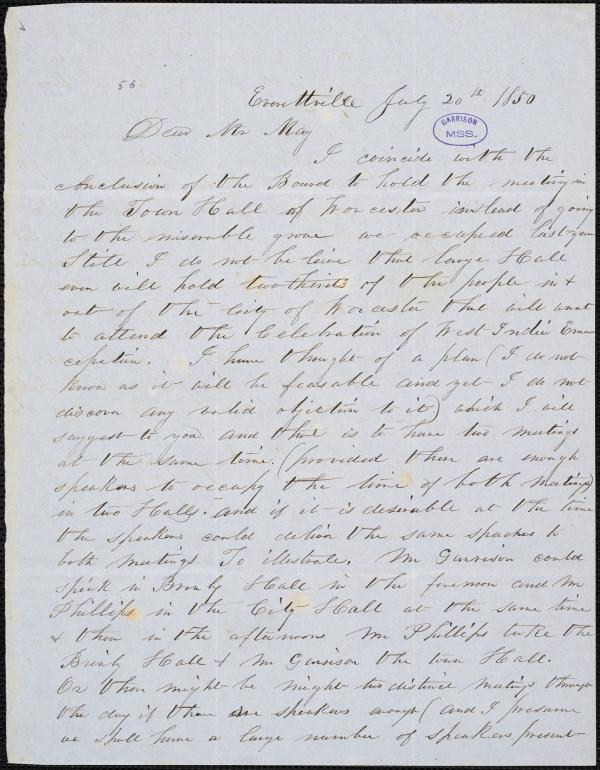 56
Everettville July 20th 1850
GARRISON
MSS.
Dear Mr May
I coincide with the
conclusion of the Board to hold the meeting in
the Town Hall of Worcester instead of going
to the miserable grove we occupied last year
Still I do not be lieve that large Hall
even will hold two thirds of the people in &
out of the City of Worcester that will want
to attend the Celebration of West India Eman
cipation. I have thought of a plan (I do not
know as it will be feasable and yet I do not
discover any valid objection to it) which I will
suggest to you. and that is to have two meetings
at the same time. (provided there are enough
speakers to occupy the time of both meetings)
in two Halls. and if it is desirable at the time
the speakers could deliver the same speeches to
both meetings. To illustrate. Mr Garrison could
speak in Brinly Hall in the forenoon and Mr
Phillips in the City Hall at the same time
& then in the afternoon Mr Phillips take the
Brinly Hall & Mr Garrison the town Hall.
Or there might be might two distinct meetings through
the day if there are speakers enough (and I presume
we shall have a large number of speakers present